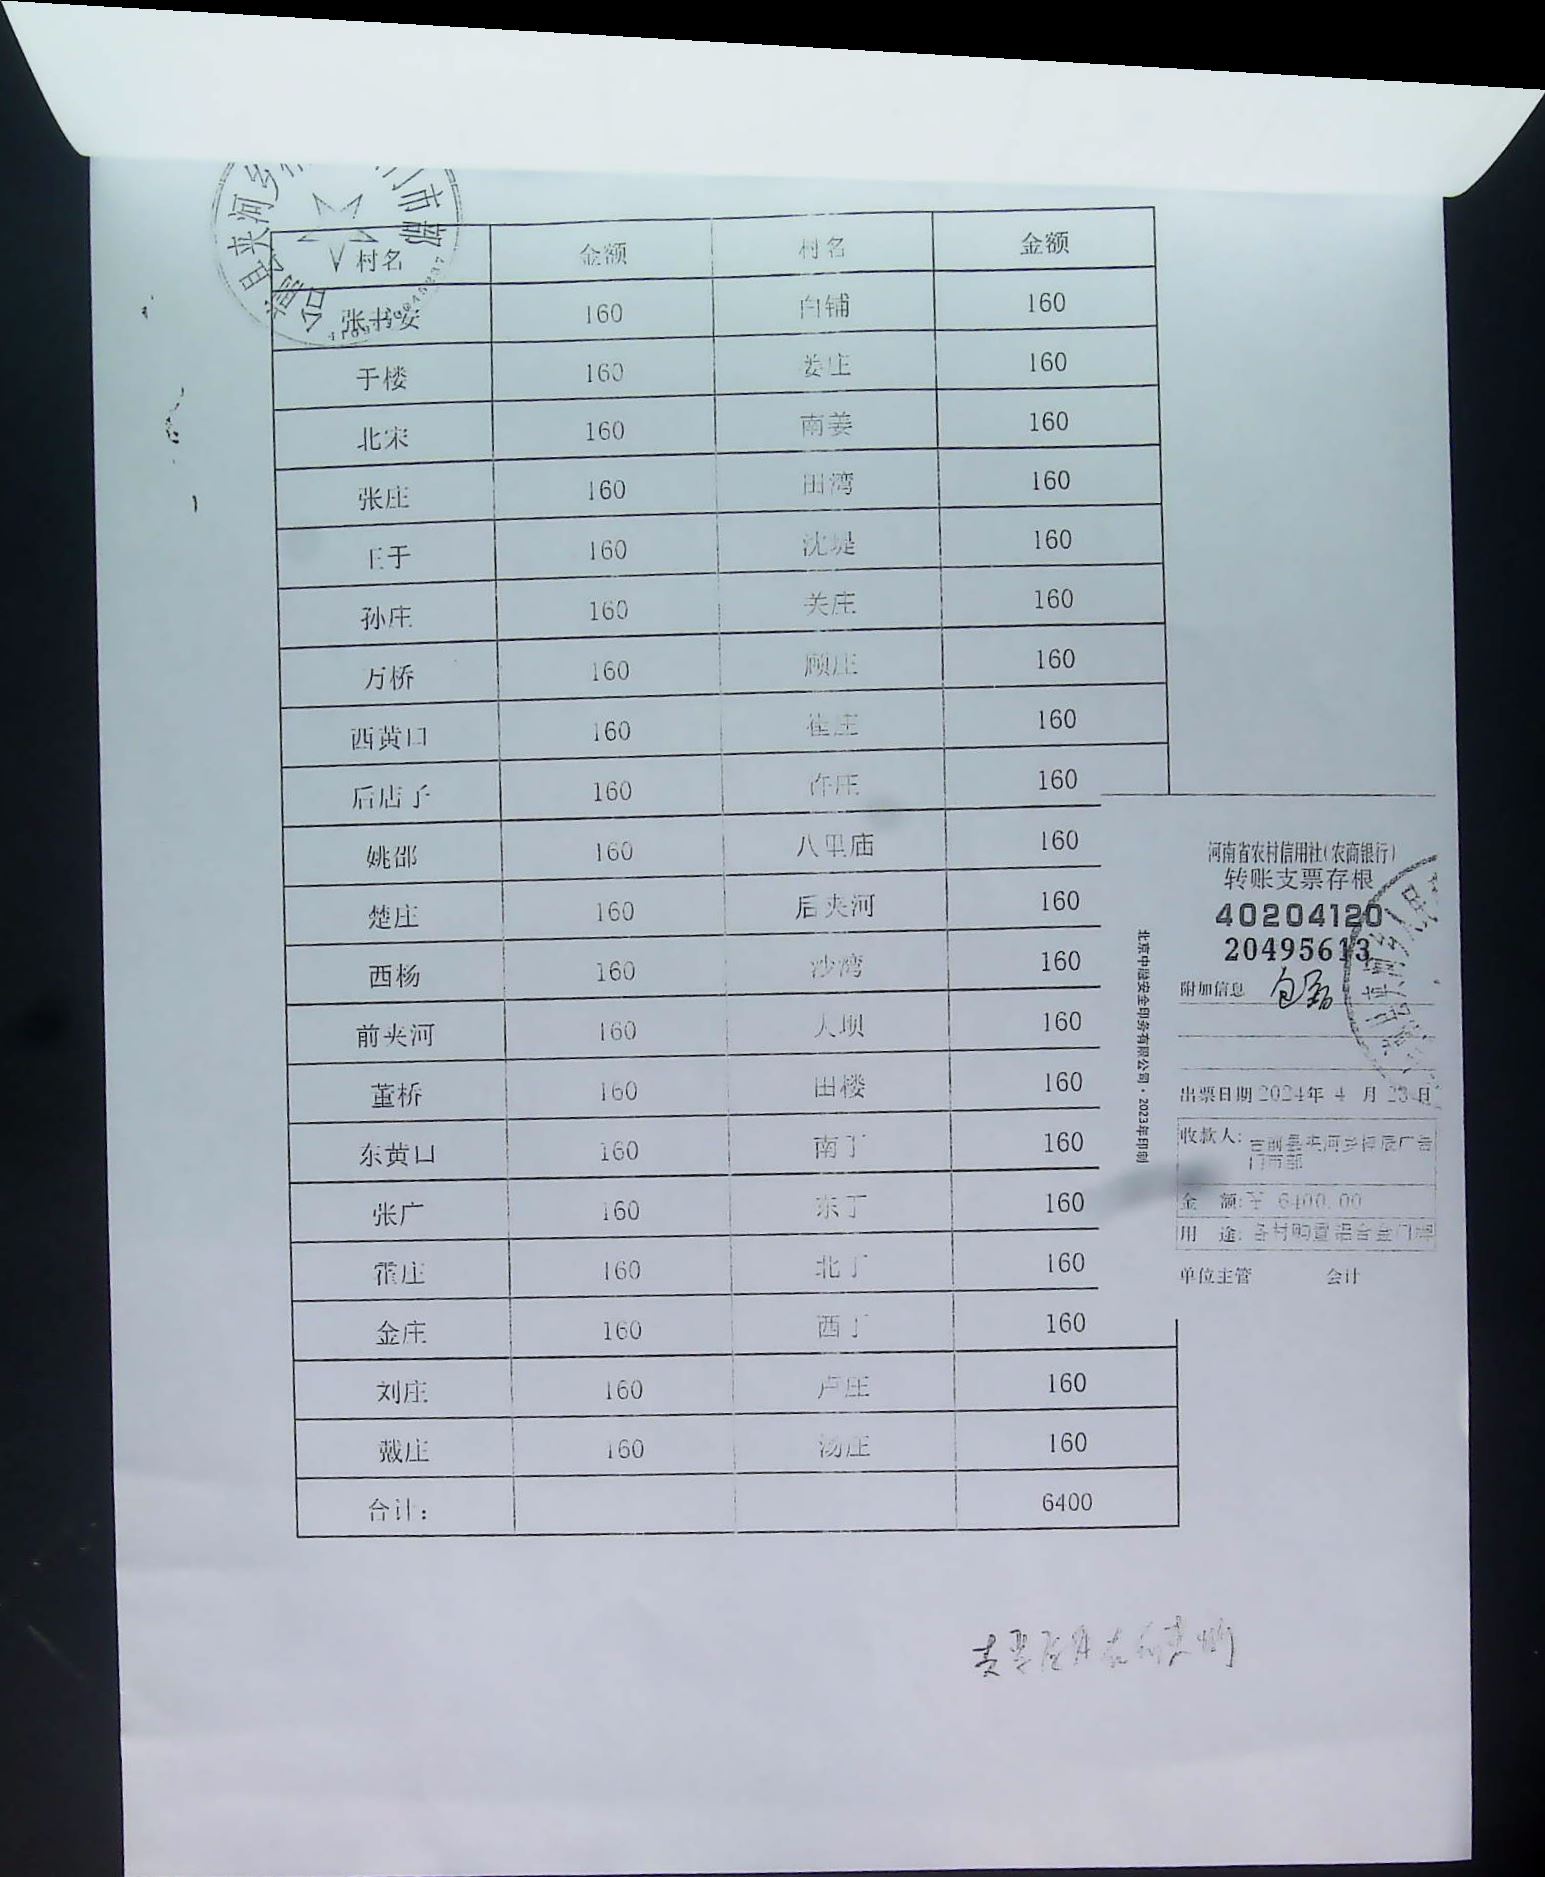 村名 金额 村名 金额
张书安 160 白铺 160
于楼 160 姜庄 160
北宋 160 南姜 160
张庄 160 田湾 160
王于 160 沈堤 160
孙庄 160 关庄 160
万桥 160 顾庄 160
西黄口 160 崔庄 160
后店子 160 许庄 160
姚邵 160 八里庙 160
楚庄 160 后夹河 160
西杨 160 沙湾 160
前夹河 160 大坝 160
董桥 160 田楼 160
东黄口 160 南丁 160
张广 160 东丁 160
霍庄 160 北丁 160
金庄 160 西丁 160
刘庄 160 卢庄 160
戴庄 160 汤庄 160
合计： 6400
河南省农村信用社(农商银行)
转账支票存根
40204120
20495613
附加信息
出票日期2024年 4 月 23日
收款人:
门市部
金 额:￥ 6400.00
用 途: 各村购置铝合金门牌
单位主管 会计
北京中融安全印务有限公司·2023年印制